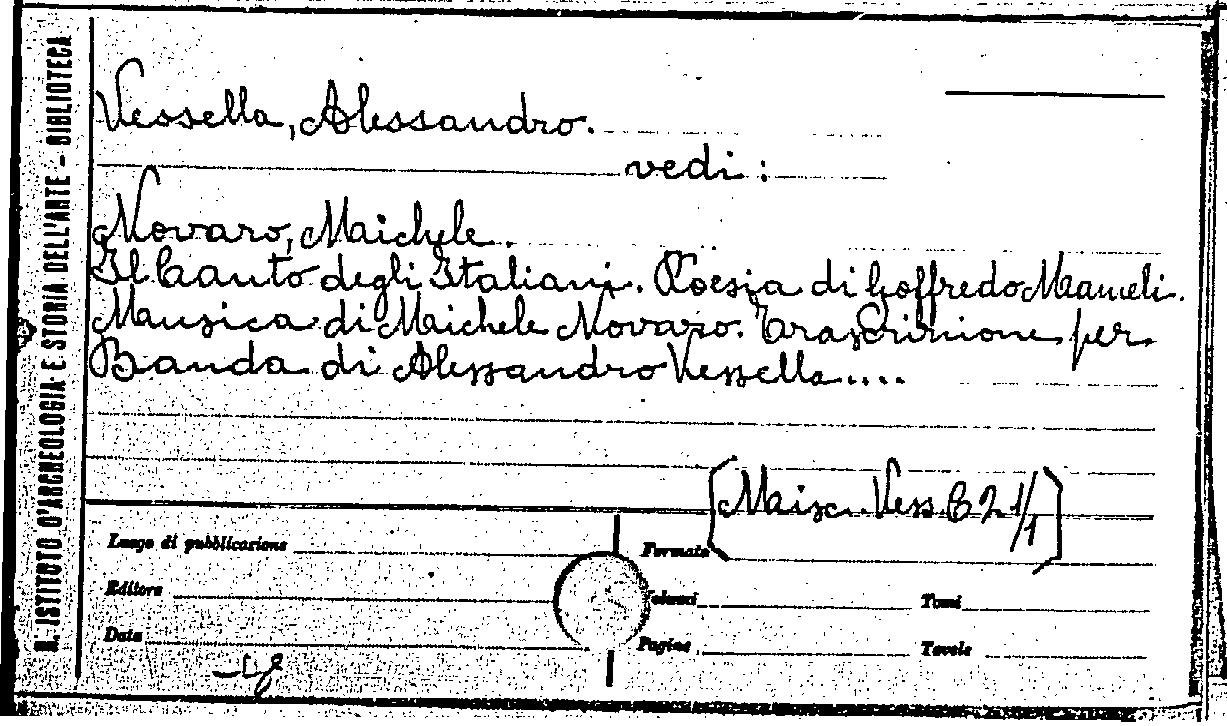 R. ISTITUTO D'ARCHEOLOGIA E STORIA DELL'ARTE - BIBLIOTECA
Vessella, Alessandro.
vedi:
Novaro, Michele.
Il Canto degli Italiani. Poesia di Goffredo Mameli.
Musica di Michele Novaro. Trascrizione per
Banda di Alessandro Vessella....
[Misc. Vess. B 2 1/1]
Luogo di pubblicazione Formato
Editore Volumi Tomi
Data Pagine Tavole